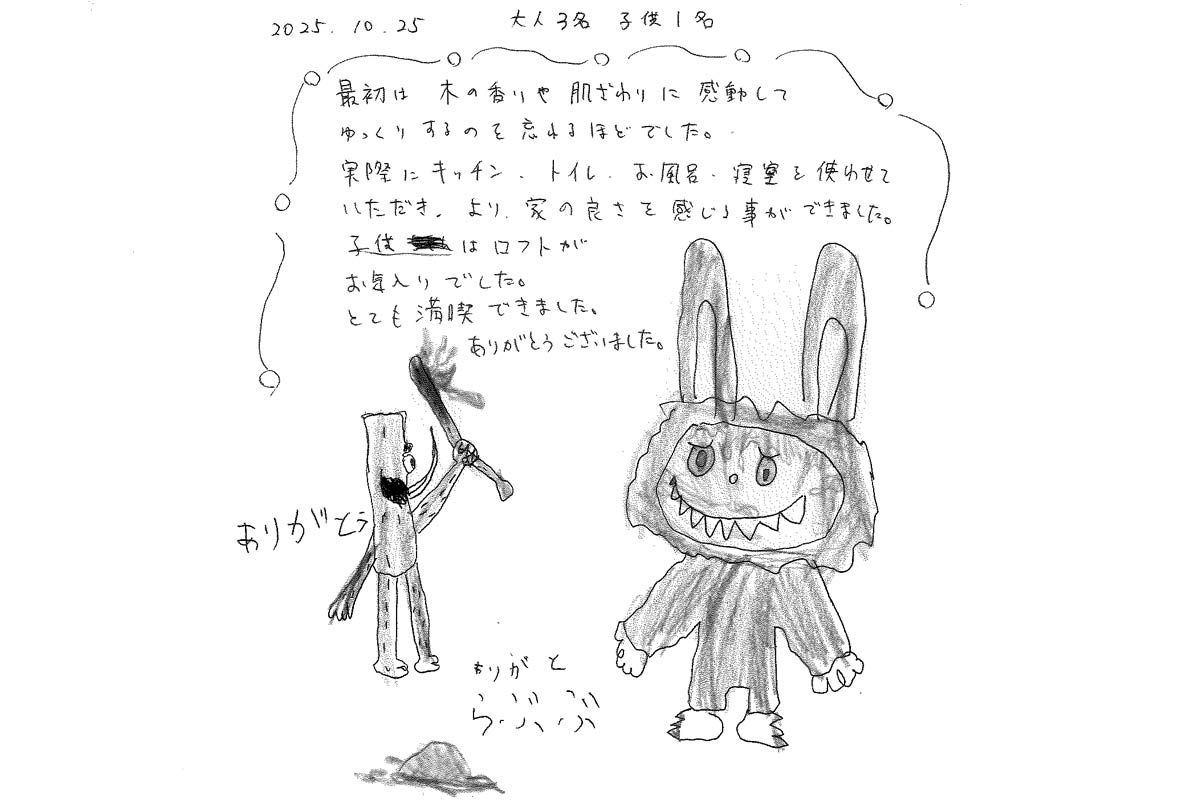 2025.10.25 大人3名 子供1名
最初は 木の香りや 肌ざわりに 感動して
ゆっくりするのを忘れるほどでした。
実際にキッチン、トイレ、お風呂、寝室を使わせて
いただき、より、家の良さを感じる事ができました。
子供 はロフトが
お気入りでした。
とても満喫できました。
ありがとうございました。
ありがとう
ありがと
らぶぶ